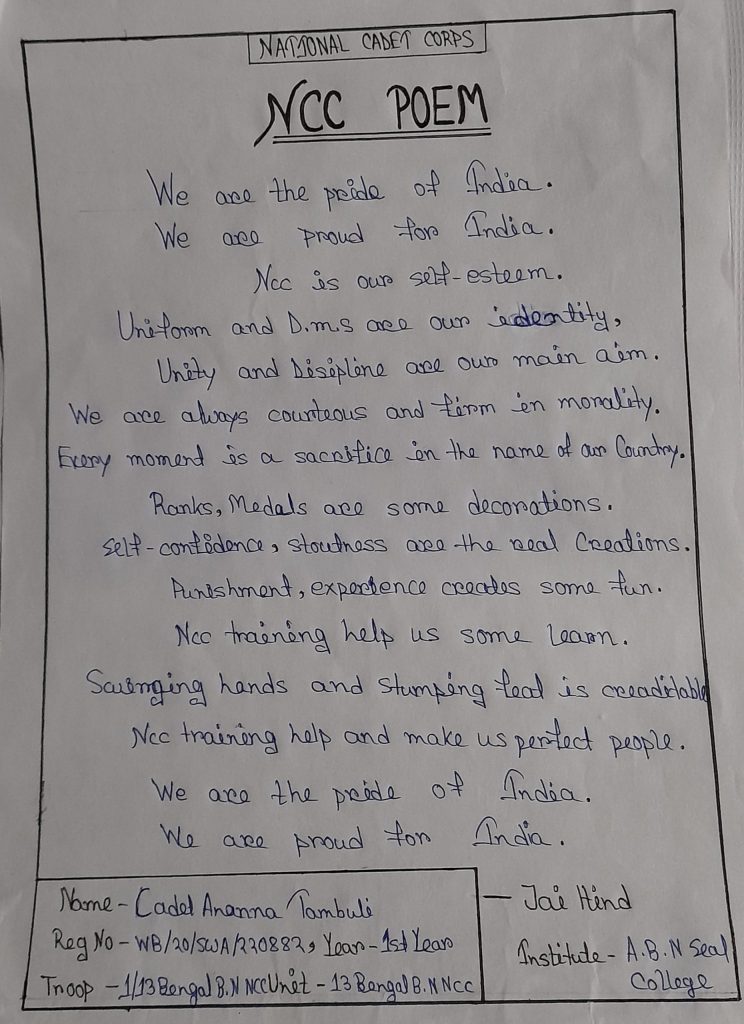 NATIONAL CADET CORPS
NCC POEM
We are the pride of India.
We are proud for India.
Ncc is our self-esteem.
Uniform and D.m.s are our identity,
Unity and Disipline are our main aim.
We are always courteous and firm in morality.
Every moment is a sacrifice in the name of our Country.
Ranks, Medals are some decorations.
Self-confidence, stoutness are the real Creations.
Punishment, experience creates some fun.
Ncc training help us some learn.
Swinging hands and stumping feat is creaditable
Ncc training help and make us perfect people.
We are the pride of India.
We are proud for India.
— Jai Hind
Name - Cadet Ananna Tambuli
Reg No - WB/20/SWA/230882, Year - 1st Year
Troop - 1/13 Bengal B.N NCC Unit - 13 Bengal B.N Ncc
Institute - A.B.N Seal
College